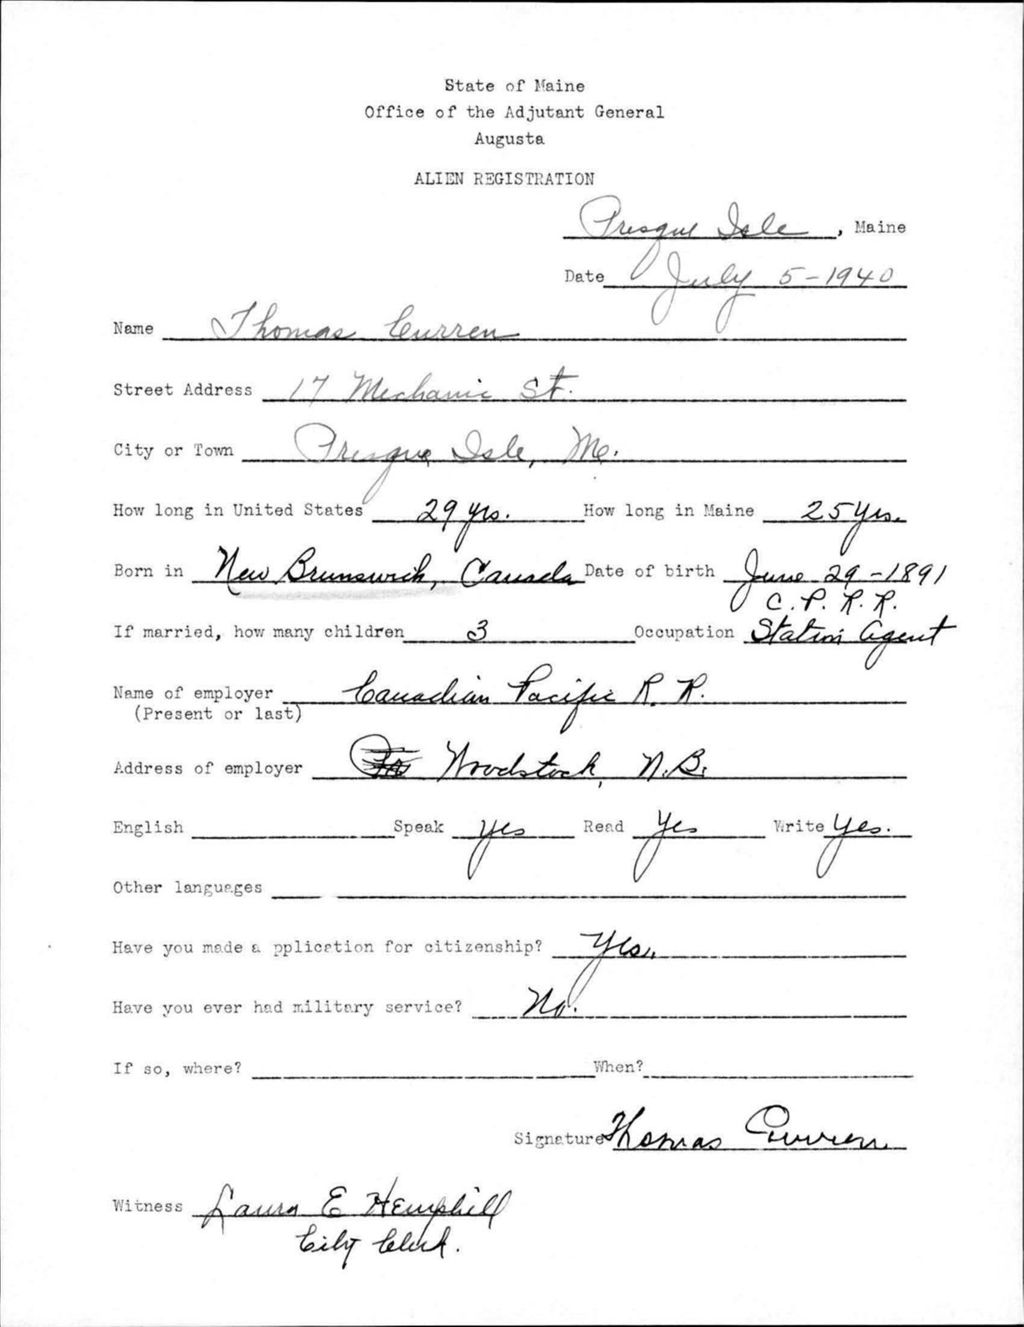 State of Maine
Office of the Adjutant General
Augusta
ALIEN REGISTRATION
Presque Isle, Maine
Date July 5-1940
Name Thomas Curren
Street Address 17 Mechanic St.
City or Town Presque Isle, Me.
How long in United States 29 yrs. How long in Maine 25 yrs.
Born in New Brunswick, Canada Date of birth June 29-1891
C. P. R. R.
If married, how many children 3 Occupation Station Agent
Name of employer Canadian Pacific R. R.
(Present or last)
Address of employer Woodstock, N.B.
English Speak Yes Read Yes Write Yes.
Other languages
Have you made a pplication for citizenship? Yes.
Have you ever had military service? No.
If so, where? When?
Signature Thomas Curren
Witness Laura E Hemphill
City Clerk.